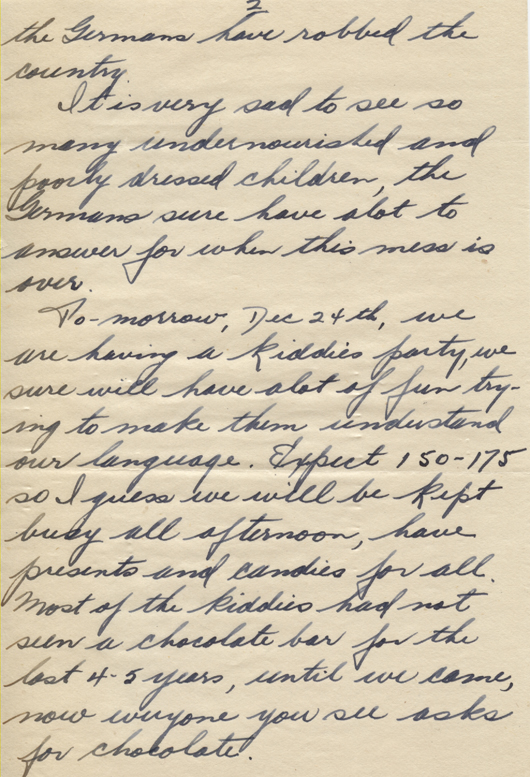 2
the Germans have robbed the
country.
It is very sad to see so
many undernourished and
poorly dressed children, the
Germans sure have alot to
answer for when this mess is
over.
To-morrow, Dec 24th, we
are having a kiddies party, we
sure will have alot of fun try-
ing to make them understand
our language. Expect 150-175
so I guess we will be kept
busy all afternoon, have
presents and candies for all.
Most of the kiddies had not
seen a chocolate bar for the
last 4-5 years, until we came,
now everyone you see asks
for chocolate.